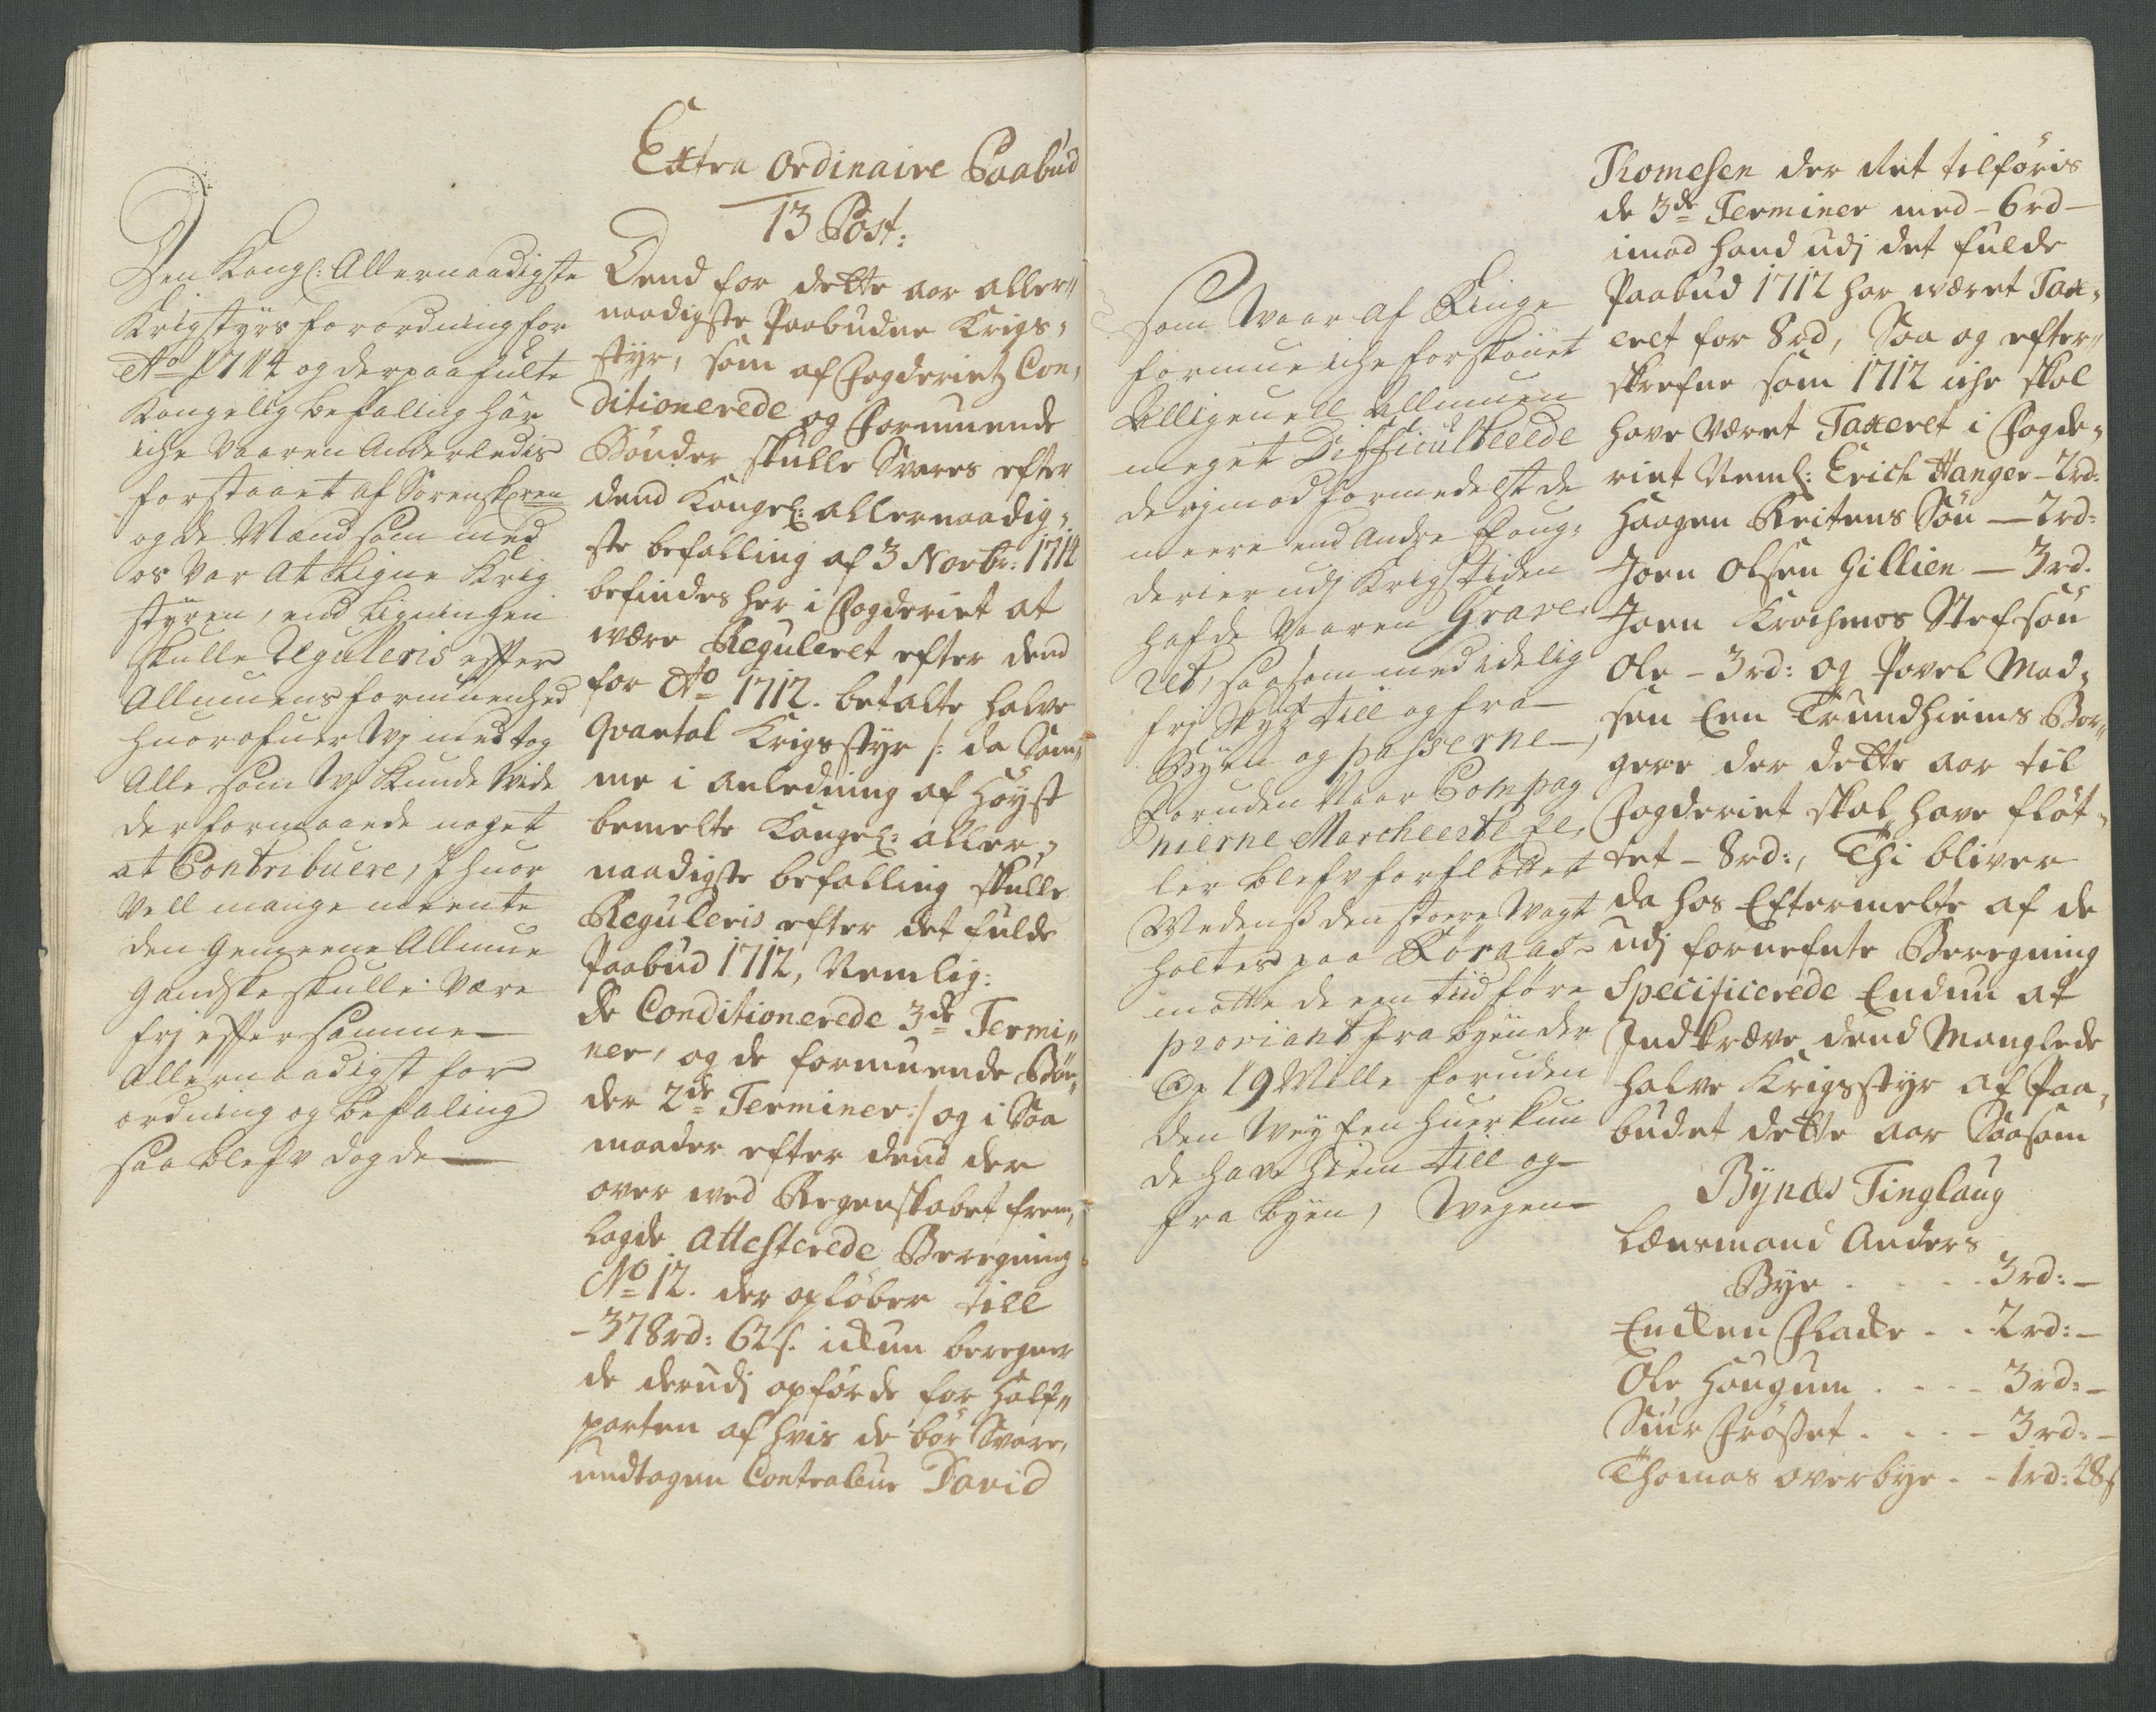 Extra Ordinaire Paabud
13 Post:
Den Kongl: Allernaadigste
Krigstyrs forordning for
Ao 1714 og derpaa fulte
Kongelig befaling har
iche vaaren Anderledis
forstaaet af Sorenskr
og de Mænd som med
os var at ligne Krig
styren, end ligningen
skulle Reguleris effter
Allmuens formuenhed
huorofuer Wj medtog
Alle som Wj kunde vide
der formaaede noget
at Contribuere, J huor
vell mange meente
den gemeene Allmue
gandske skulle være
frj effter samme
Allernaadigst for
ordning og befaling
saa blefv dog de
Dend for dette aar aller¬
naadigste Paabudne Krigs¬
styr, som af Fogderietz Con¬
ditionerede og Formuende
Bönder skulle Svares efter
dend Kongel: allernaadig¬
ste befalling af 3 Novbr: 1714
befindes her i Fogderiet at
være Reguleret efter dend
for Ao 1712. betalte halve
Qvartal Krigsstyr /: da Sam¬
me i anledning af Höyst
bemelte Kongel: aller¬
naadigste befalling skulle
Reguleris efter det fulde
Paabud 1712, Nemlig:
de Conditionerede 3de Termi¬
ner, og de formuende Bön¬
der 2de Terminer :/ og i Saa
maader efter dend der
over ved Regenskabet frem¬
lagde attesterede Beregning
No 12. der opløber till
- 378rd: 62s. ickun beregner
de derudj opförde for Half¬
parten af hvis de bör Svare,
undtagen Controleur David
som Waar af Ringe
formue iche forskaanet
Alligeuell Allmuen
meget Difficulteerede
derjmod formedelst de
meere end Andre foug¬
derier udj Krigstiden
hafde vaaren Grave
ret, saasom med idelig
frj skyds till og fra
Byen og passerne
foruden Naar Compag
nierne Marcheerte el¬
ler blefv forflöttet
Medens den stoere Wagt
holtes paa Röraas
motte de een tiid före
proviant fra byen der
op 19 Mille foruden
den Wey en huer kun
de have hiem till og
fra byen, Wegen
Thomesen der Ret tilföris
de 3de Terminer med - 6rd -
imod hand udj det fulde
Paabud 1712 har været Tax¬
eret for 8rd, Saa og efter¬
skrefne som 1712 iche skal
have været Taxeret i Fogde¬
riet Neml: Erich Hanger - 2rd:
Haagen Reitens Sön — 2rd:
Joen Olsen Gillien — 3rd.
Joen Krochmos Stefsön
Ole - 3rd: og Povel Mad¬
sen Een Trundhiems Bor¬
gere der dette aar til
Fogderiet skal have flöt¬
tet - 8rd:, Thi bliver
da hos Eftermelte af de
udj fornefnte Beregning
Specificerede Endnu at
Indkræve dend Manglede
halve Krigsstyr af Paa¬
budet dette aar Saasom
Bynæs Tinglaug
Lænsmand Anders
Bye . . . . 3rd: -
Encken Flacke . . 2rd: -
Ole Hougum . . - 3rd: -
Siur Frösset . . . - 3rd: -
Thomas overbye . - 1rd: 48s